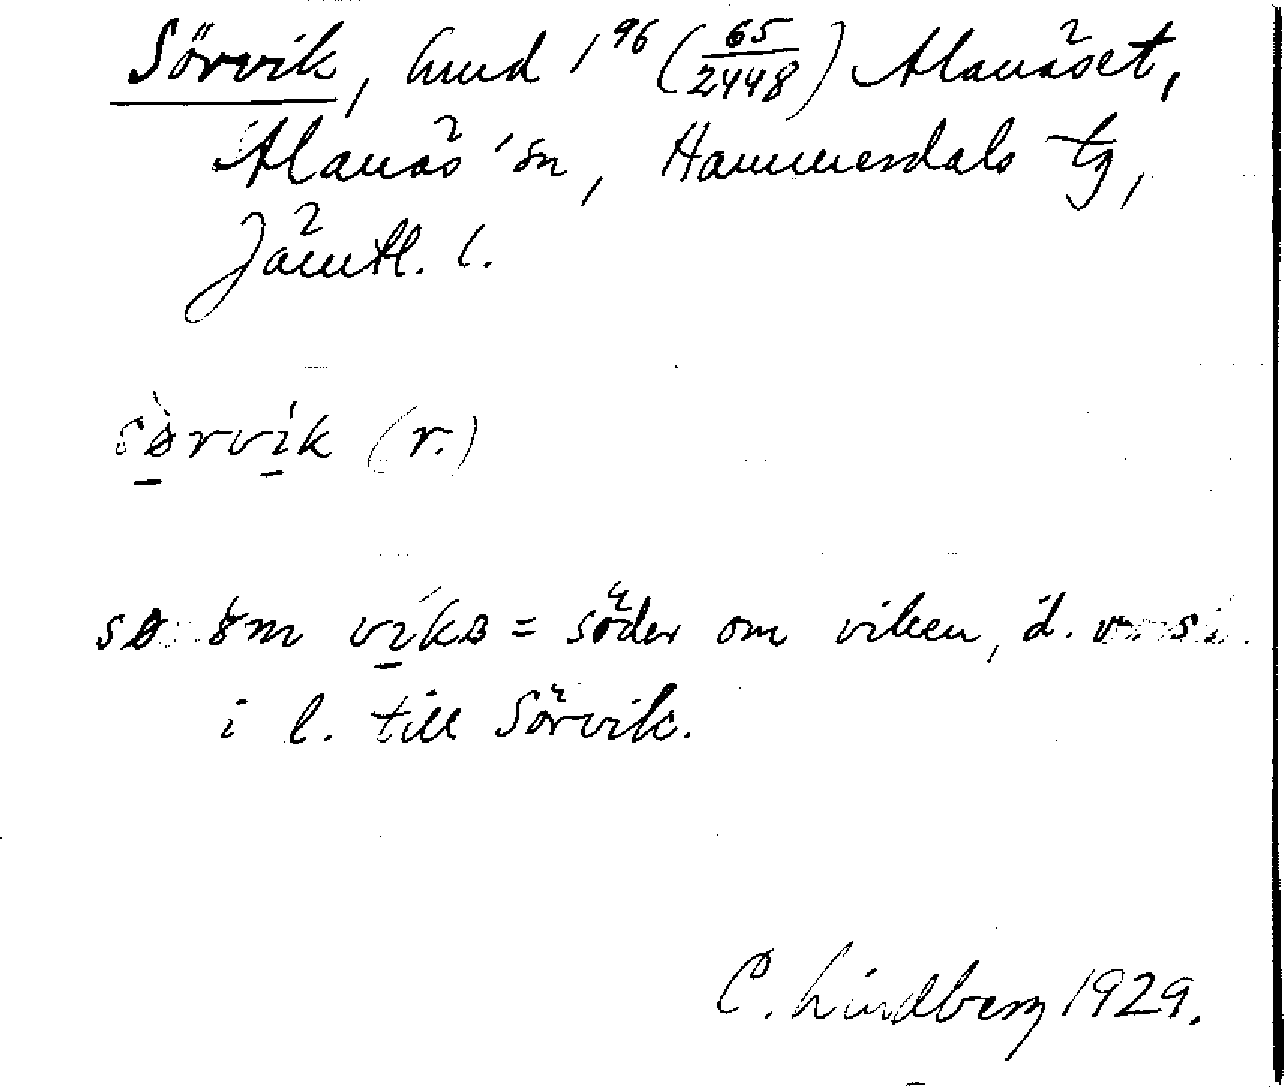 Sörvik, hmd 1⁹⁶ (65/2448) Alanäset,
Alanäs sn, Hammerdals tg,
Jämtl. l.
sörvik (r.)
om vikα = söder om viken, d. v. s.
i l. till Sörvik.
C. Lindberg 1929.